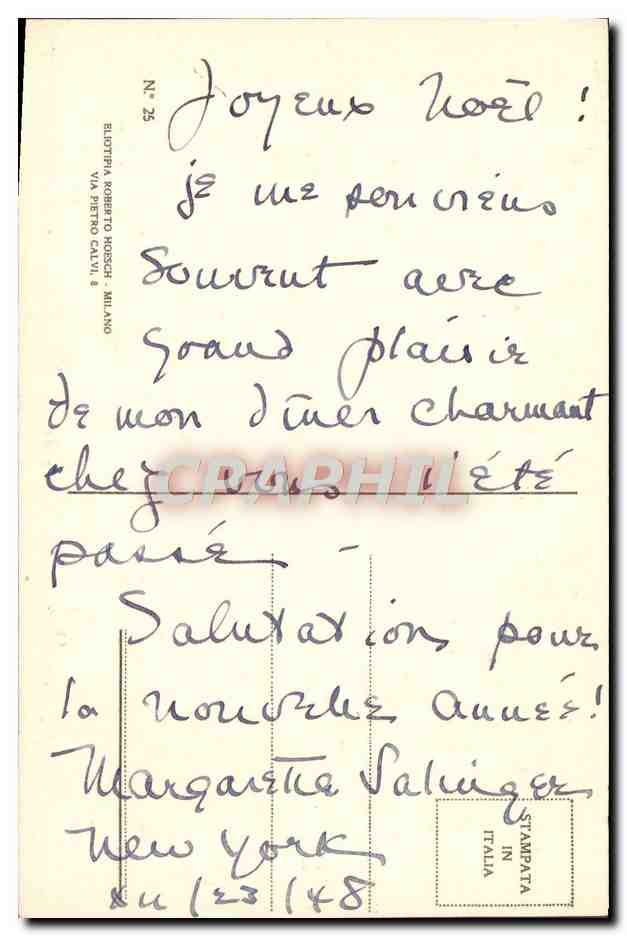 Joyeux Noël !
je me souviens
souvent avec
grand plaisir
de mon dîner charmant
chez vous l'été
passé -
Salutations pour
la nouvelle année!
Margaretta Salinger
New York
XII/23/48
N.° 25
ELIOTIPIA ROBERTO HOESCH - MILANO
VIA PIETRO CALVI, 8
STAMPATA
IN
ITALIA
CPAPHIL